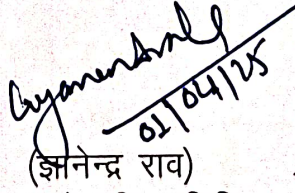 Gyanendra
01/04/25
(ज्ञानेन्द्र राव)